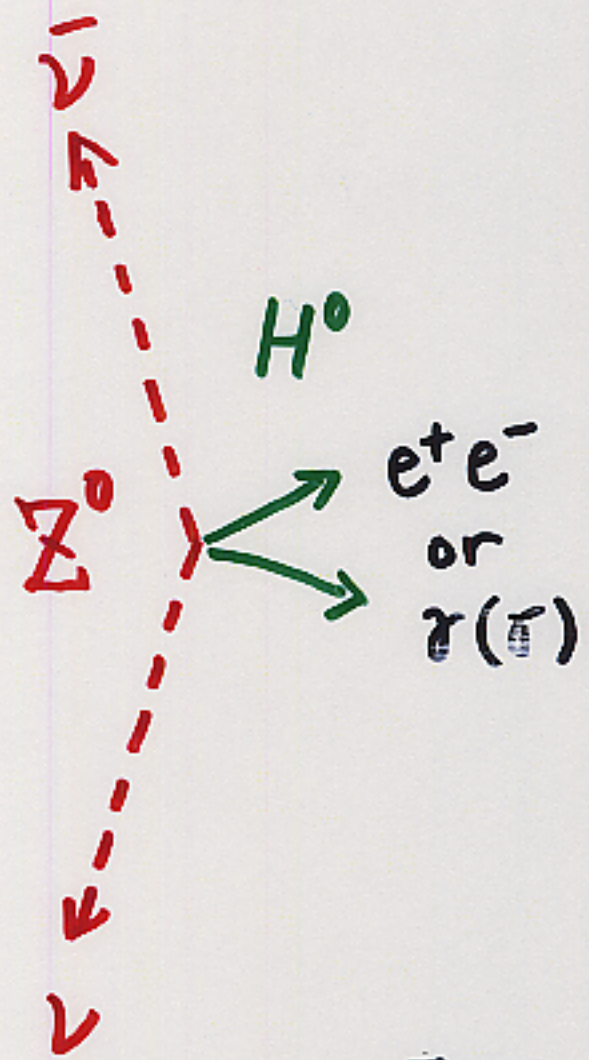 ν̄
H⁰
Z⁰
e⁺e⁻
or
γ(γ̄)
ν